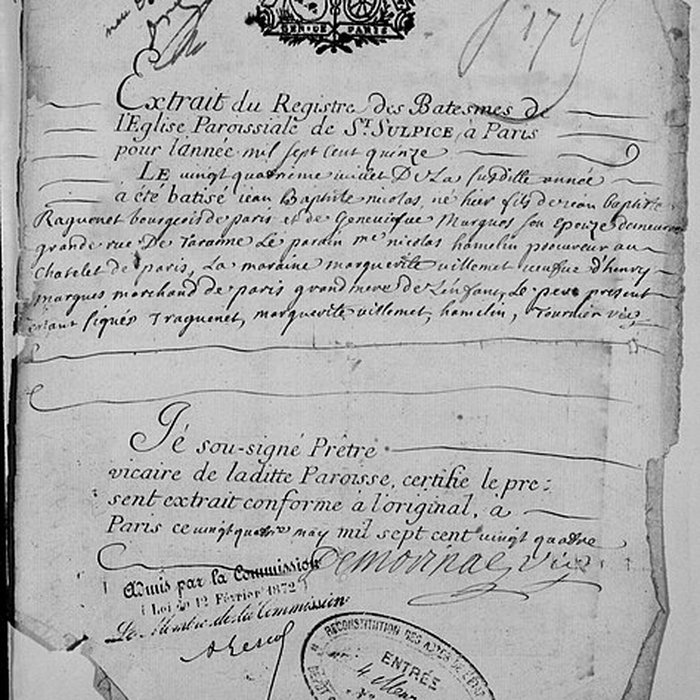 GEN. DE PARIS
1715
Extrait du Registre des Batesmes de
l'Eglise Paroissiale de St. SULPICE, a Paris
pour l'année mil sept cent quinze
LE vingt quatrieme De La susditte année
a été batisé jean Baptiste nicolas, né hier fils de jean baptiste
Raguenet bourgeois de paris et de Genevieфue Marques son epouze demeurant
grande rue De Taranne Le parain me nicolas hamelin procureur au
Chatelet de paris, La maraine marguerite villemet veufue d'henry
marques marchand de paris grand mere de L'enfant, Le pere present
signés Jraguenet, marguerite villemet, hamelin, Tournier vic
Jé sou-signé Prêtre
vicaire de laditte Paroisse, certifie le pre:
sent extrait conforme à l'original, à
Paris ce vingt quatre may mil sept cent vingt quatre
Vic
Admis par la Commission
(Loi du 12 Février 1872)
Le Membre de la Commission
RECONSTITUTION DES ACTES DE L'ÉTAT
ENTRÉE